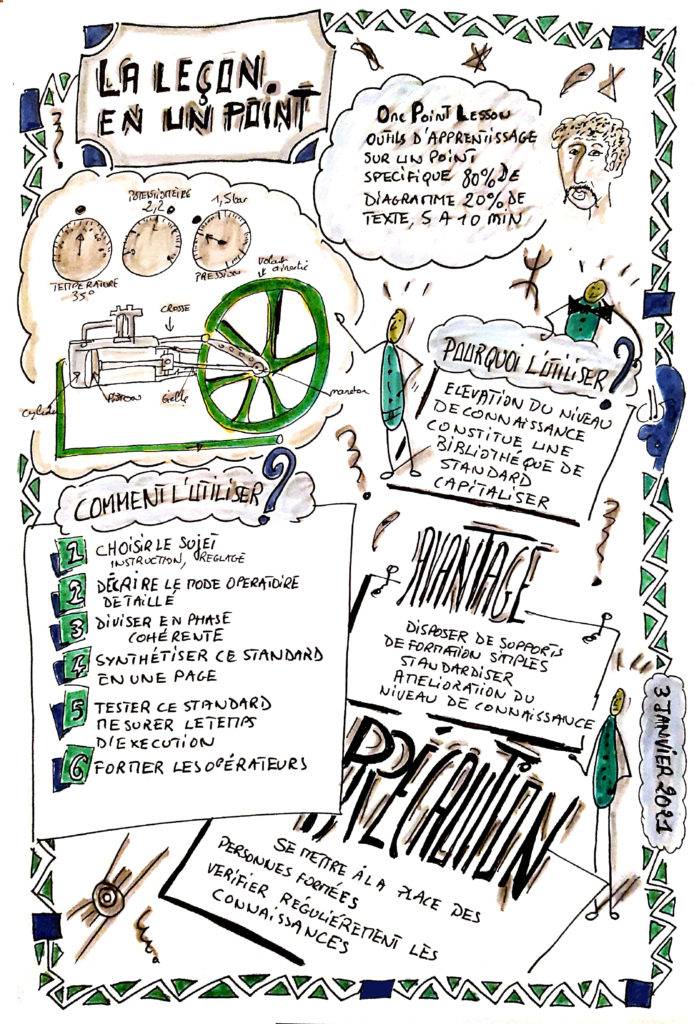 LA LEÇON
EN UN POINT
One Point Lesson
OUTILS D'APPRENTISSAGE
SUR UN POINT
SPECIFIQUE 80% DE
DIAGRAMME 20% DE
TEXTE, 5 A 10 MIN
POTENTIOMETRE
2,2
1,5 bar
TEMPERATURE
35°
PRESSION
volant
d'inertie
CROSSE
cylindre
PISTON
bielle
maneton
POURQUOI L'UTILISER ?
ELEVATION DU NIVEAU
DE CONNAISSANCE
CONSTITUE UNE
BIBLIOTHÉQUE DE
STANDARD
CAPITALISER
COMMENT L'UTILISER ?
1 CHOISIR LE SUJET
INSTRUCTION, REGLAGE
2 DÉCRIRE LE MODE OPERATOIRE
DETAILLÉ
3 DIVISER EN PHASE
COHÉRENTE
4 SYNTHÉTISER CE STANDARD
EN UNE PAGE
5 TESTER CE STANDARD
MESURER LE TEMPS
D'EXECUTION
6 FORMER LES OPÉRATEURS
AVANTAGE
DISPOSER DE SUPPORTS
DE FORMATION SIMPLES
STANDARDISER
AMELIORATION DU
NIVEAU DE CONNAISSANCE
PRÉCAUTION
SE METTRE À LA PLACE DES
PERSONNES FORMÉES
VERIFIER REGULIÉREMENT LES
CONNAISSANCES
3 JANVIER 2021